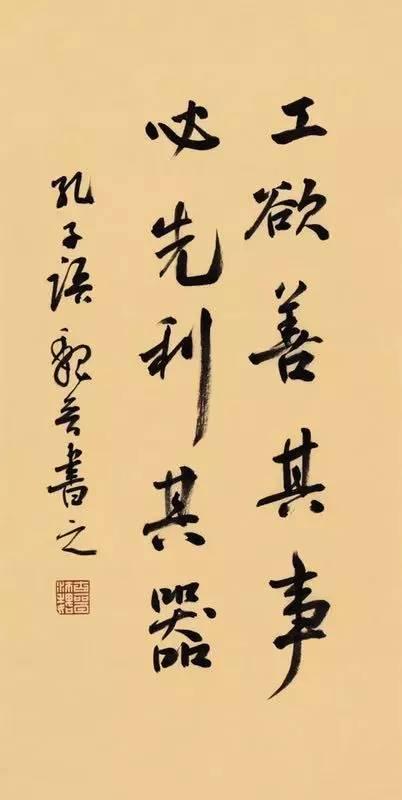 工欲善其事
必先利其器
孔子語書之